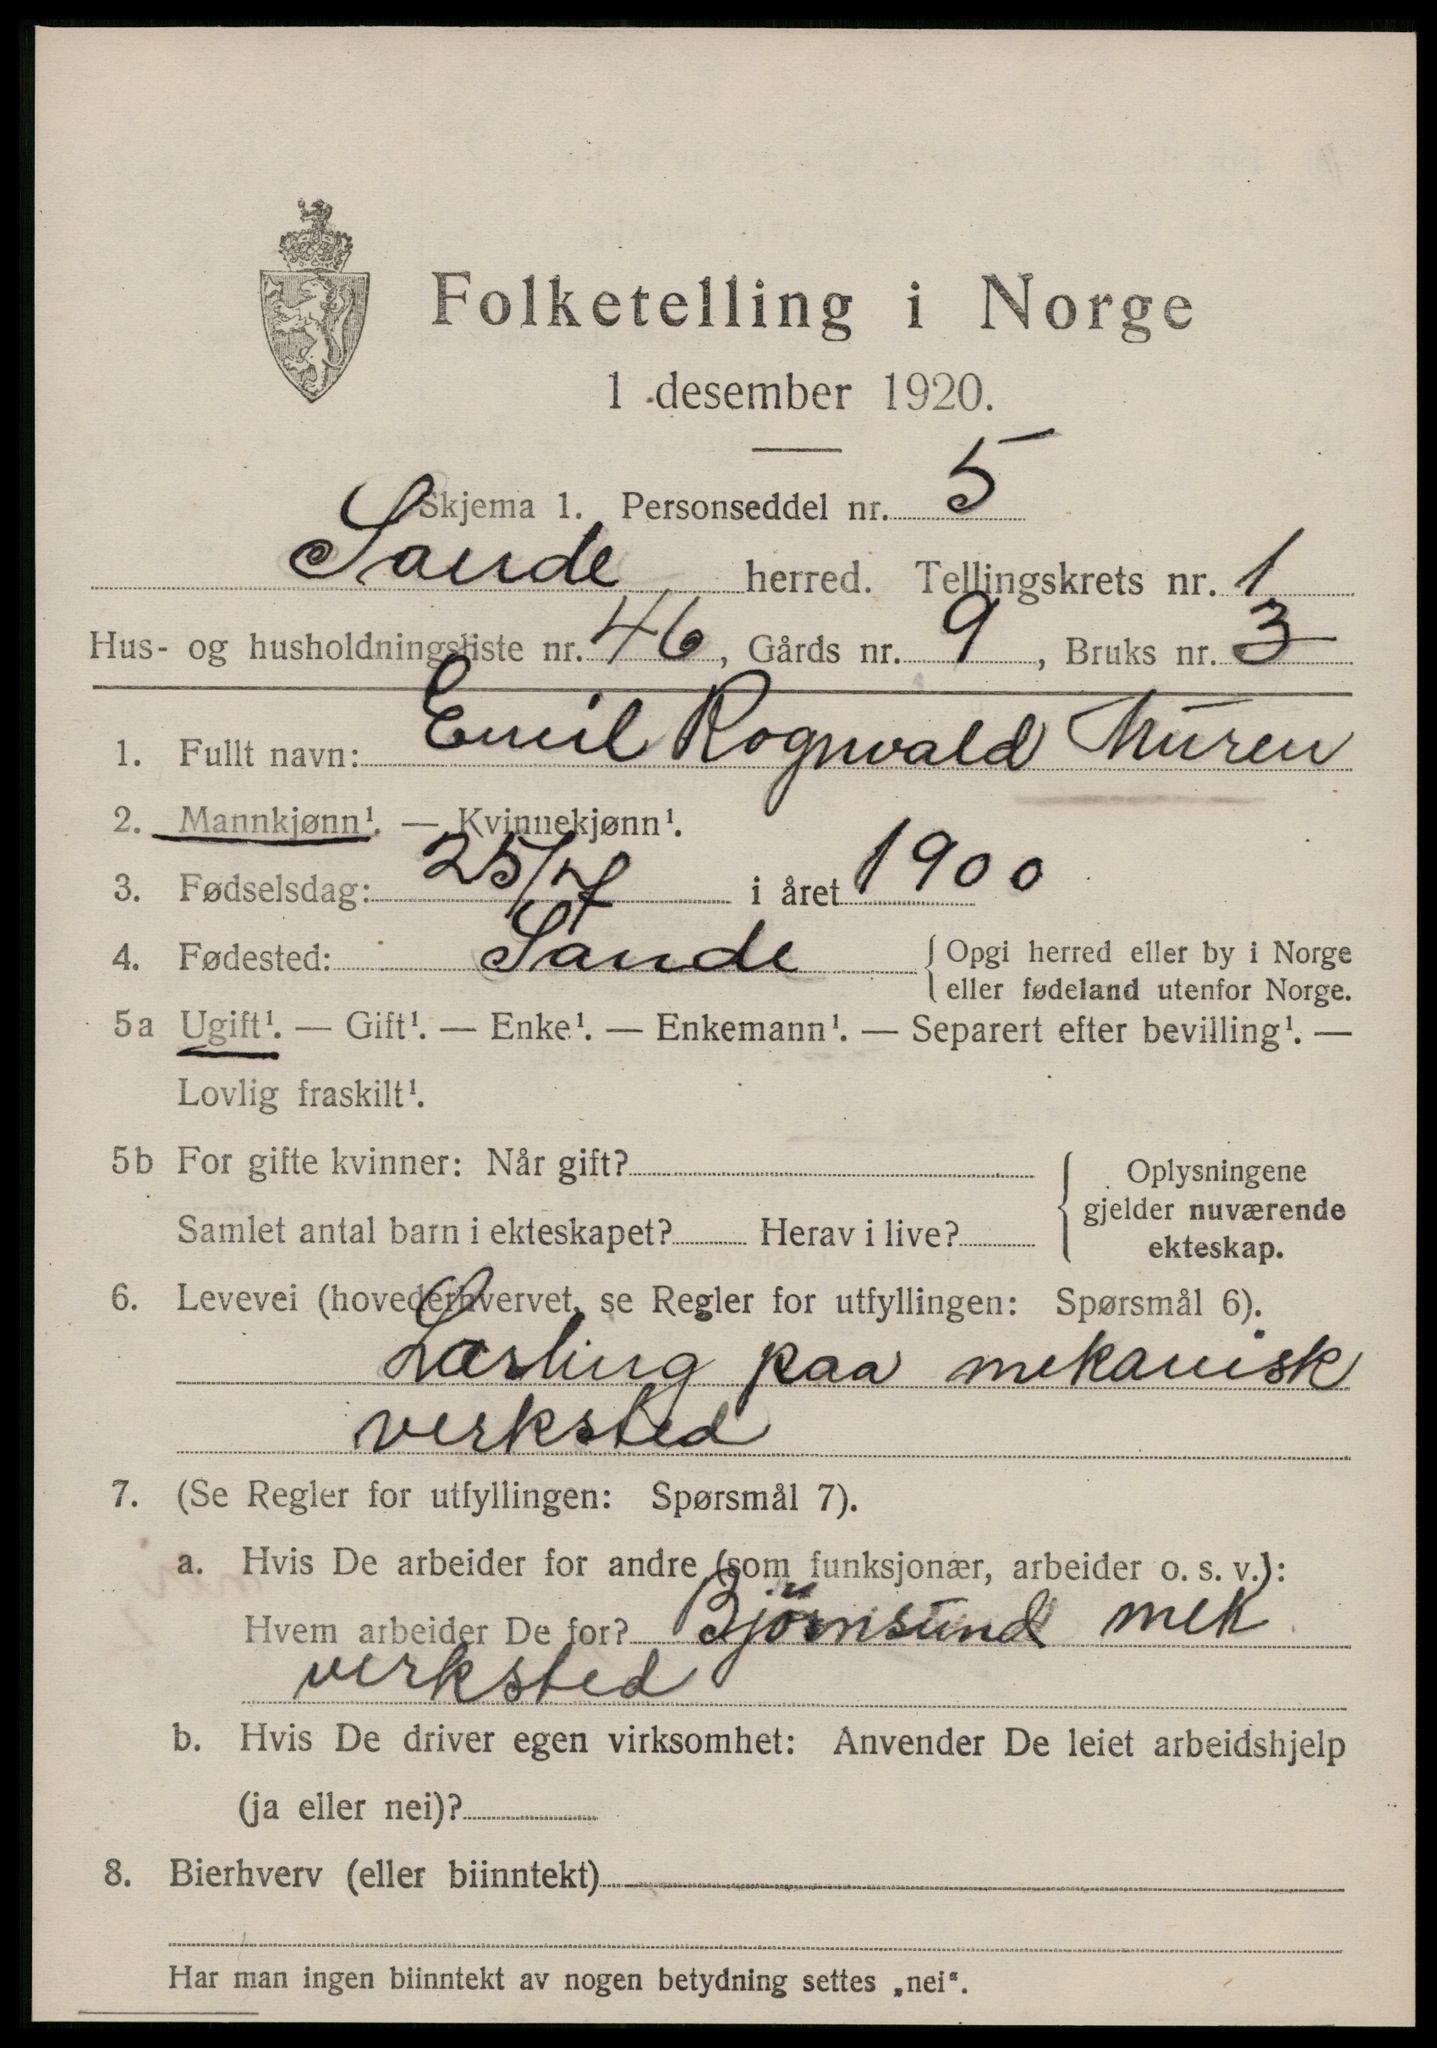 Folketelling i Norge
1 desember 1920.
Skjema 1. Personseddel nr. 5
Sande herred. Tellingskrets nr. 1
Hus- og husholdningsliste nr. 46, Gårds nr. 9, Bruks nr. 3
1. Fullt navn: Emil Rognvald Muren
2. Mannkjønn¹. — Kvinnekjønn¹.
3. Fødselsdag: 25/7 i året 1900
4. Fødested: Sande { Opgi herred eller by i Norge
eller fødeland utenfor Norge.
5a Ugift¹. — Gift¹. — Enke¹. — Enkemann¹. — Separert efter bevilling¹. —
Lovlig fraskilt¹.
5b For gifte kvinner: Når gift? { Oplysningene
gjelder nuværende
Samlet antal barn i ekteskapet? Herav i live?
ekteskap.
6. Levevei (hovederhvervet, se Regler for utfyllingen: Spørsmål 6).
Lærling paa mekanisk
verksted
7. (Se Regler for utfyllingen: Spørsmål 7).
a. Hvis De arbeider for andre (som funksjonær, arbeider o. s. v.):
Hvem arbeider De for? Björnsund mek
verksted
b. Hvis De driver egen virksomhet: Anvender De leiet arbeidshjelp
(ja eller nei)?
8. Bierhverv (eller biinntekt)
Har man ingen biinntekt av nogen betydning settes „nei“.